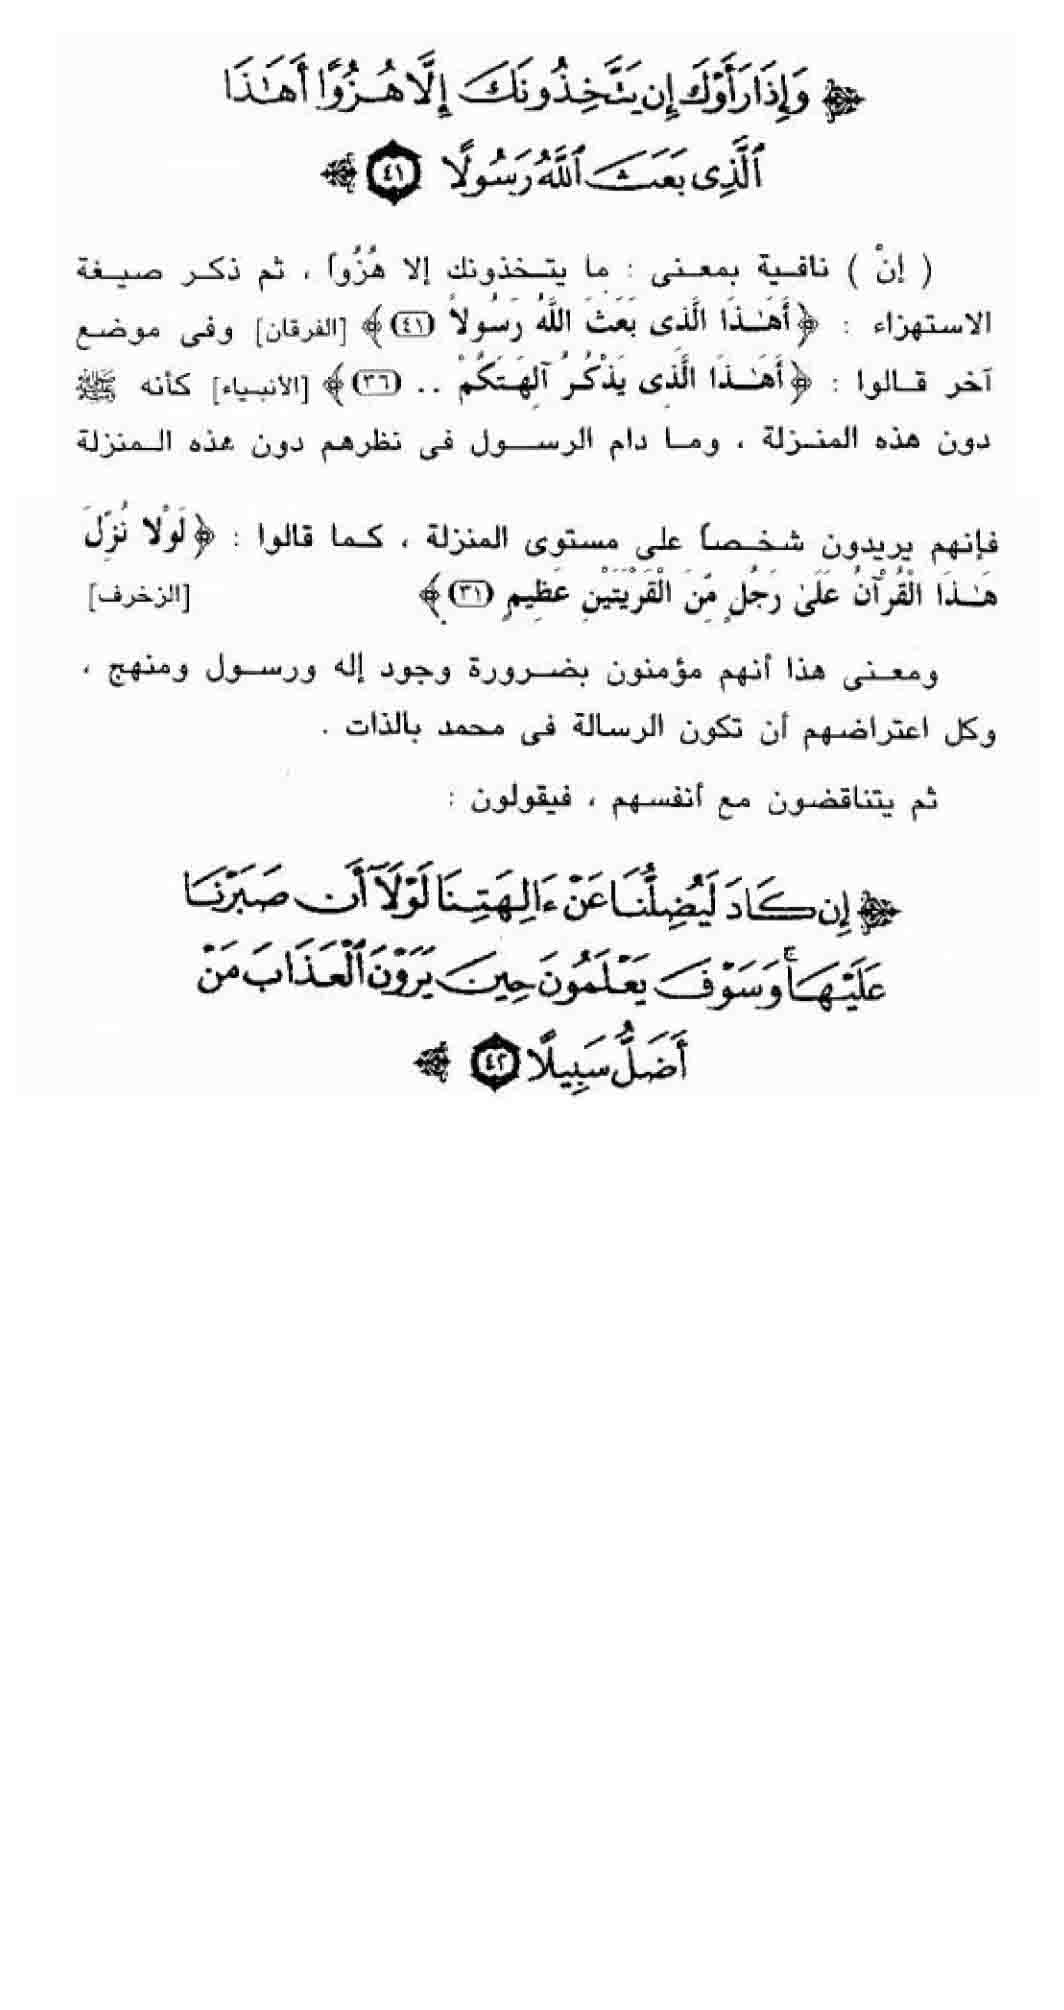 ﴿ وَإِذَا رَأَوْكَ إِن يَتَّخِذُونَكَ إِلَّا هُزُوًا أَهَٰذَا
ٱلَّذِى بَعَثَ ٱللَّهُ رَسُولًا ٤١ ﴾
( إنْ ) نافية بمعنى : ما يتخذونك إلا هُزُواً ، ثم ذكر صيغة
الاستهزاء : ﴿ أَهَـٰذَا الَّذِى بَعَثَ اللَّهُ رَسُولاً (٤١) ﴾ [الفرقان] وفى موضع
آخر قالوا : ﴿ أَهَـٰذَا الَّذِى يَذْكُرُ آلِهَتَكُمْ .. (٣٦) ﴾ [الأنبياء] كأنه ﷺ
دون هذه المنزلة ، وما دام الرسول فى نظرهم دون هذه المنزلة
فإنهم يريدون شخصاً على مستوى المنزلة ، كما قالوا : ﴿ لَوْلا نُزِّلَ
هَـٰذَا الْقُرْآنُ عَلَىٰ رَجُلٍ مِّنَ الْقَرْيَتَيْنِ عَظِيمٍ (٣١) ﴾ [الزخرف]
ومعنى هذا أنهم مؤمنون بضرورة وجود إله ورسول ومنهج ،
وكل اعتراضهم أن تكون الرسالة فى محمد بالذات .
ثم يتناقضون مع أنفسهم ، فيقولون :
﴿ إِن كَادَ لَيُضِلُّنَا عَنْ ءَالِهَتِنَا لَوْلَآ أَن صَبَرْنَا
عَلَيْهَا ۚ وَسَوْفَ يَعْلَمُونَ حِينَ يَرَوْنَ ٱلْعَذَابَ مَنْ
أَضَلُّ سَبِيلًا ٤٢ ﴾